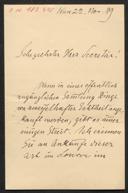 Wien 22. Nov. 89
Sehr geehrter Herr Secretär!
Wenn in einer öffentlich
zugänglichen Sammlung Dinge
von zweifelhafter Echtheit ange-
kauft werden, gibt es immer
einigen Streit. Ich erinnere
Sie an Ankäufe dieser
Art in Louvre im